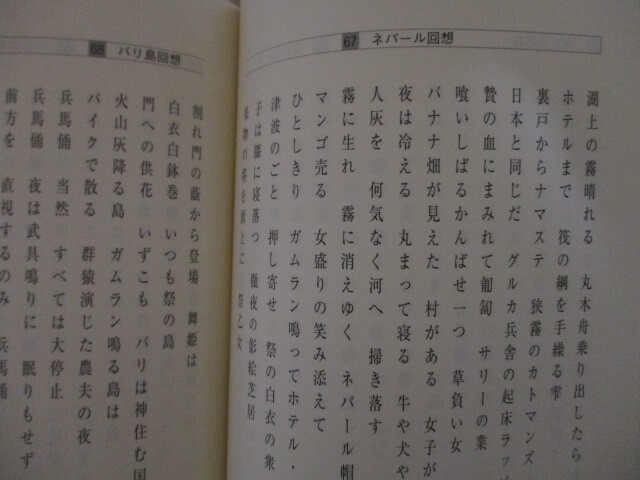 67 ネパール回想
湖上の霧晴れる 丸木舟乗り出したら
ホテルまで 筏の綱を手繰る雫
裏戸からナマステ 狭霧のカトマンズ
日本と同じだ グルカ兵舎の起床ラッ
贄の血にまみれて匍匐 サリーの業
喰いしばるかんばせ一つ 草負い女
バナナ畑が見えた 村がある 女子が
夜は冷える 丸まって寝る 牛や犬や
人灰を 何気なく河へ 掃き落す
霧に生れ 霧に消えゆく ネパール帽
マンゴ売る 女盛りの笑み添えて
ひとしきり ガムラン鳴ってホテル・
津波のごと 押し寄せ 祭の白衣の衆
子は膝に寝落つ 徹夜の影絵芝居
物の塔を頭上に 祭乙女
68 バリ島回想
割れ門の蔭から登場 舞姫は
白衣白鉢巻 いつも祭の島
門への供花 いずこも バリは神住む国
火山灰降る島 ガムラン鳴る島は
バイクで散る 群猿演じた農夫の夜
兵馬俑 当然 すべては大停止
兵馬俑 夜は武具鳴りに 眠りもせず
前方を 直視するのみ 兵馬俑